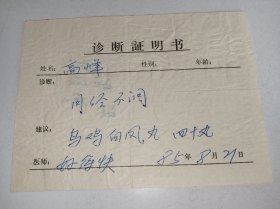 诊断証明书
姓名：高峰 性别： 年龄：
诊断：
月经不调
建议：
乌鸡白凤丸 四十丸
医师： 85年8月21日